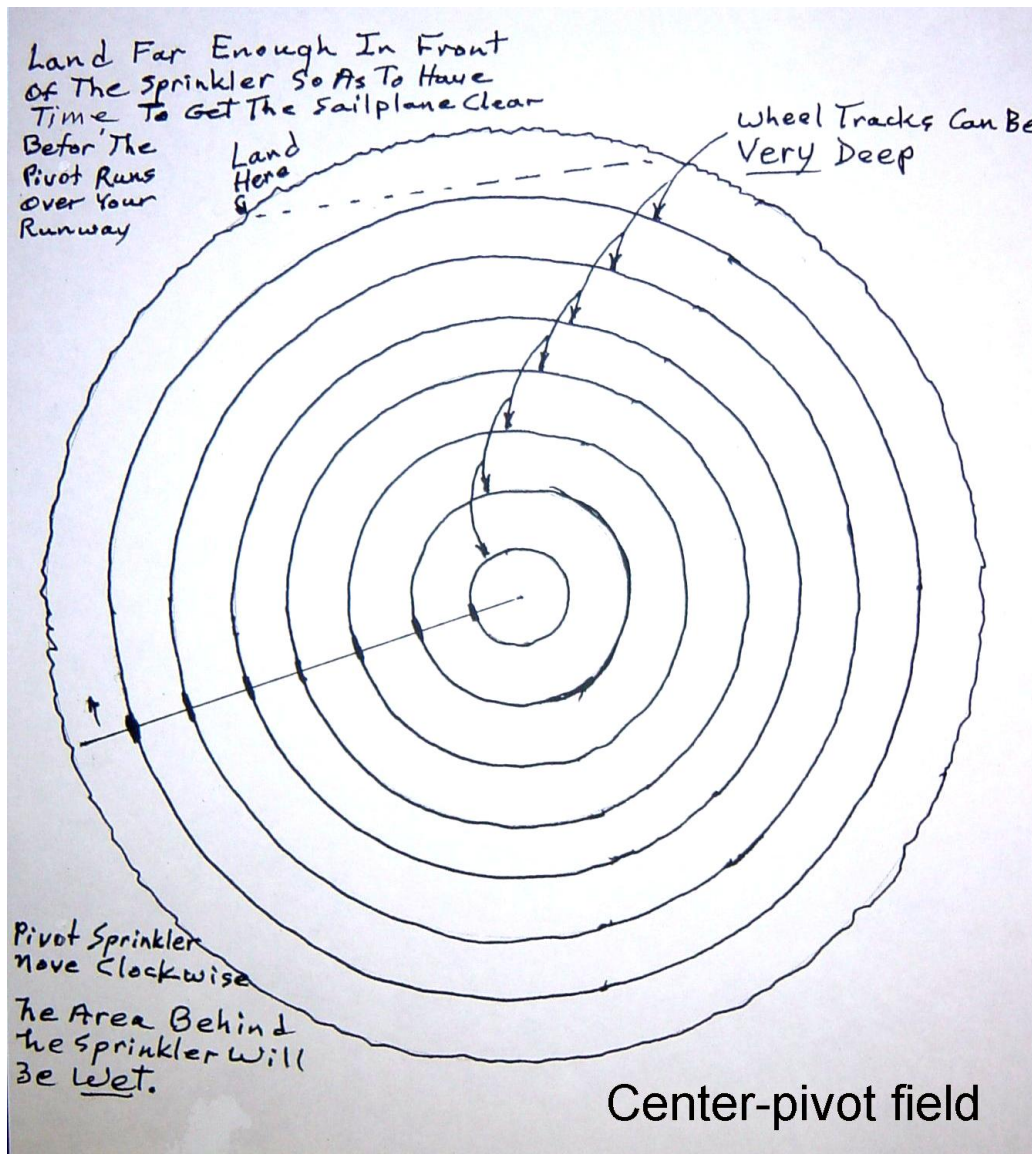 Land Far Enough In Front
Of The Sprinkler So As To Have
Time To Get The Sailplane Clear
Befor The
Pivot Runs
Over Your
Runway
Land
Here
Wheel Tracks Can Be
Very Deep
Pivot Sprinkler
Move Clockwise
The Area Behind
The Sprinkler Will
Be Wet.
Center-pivot field